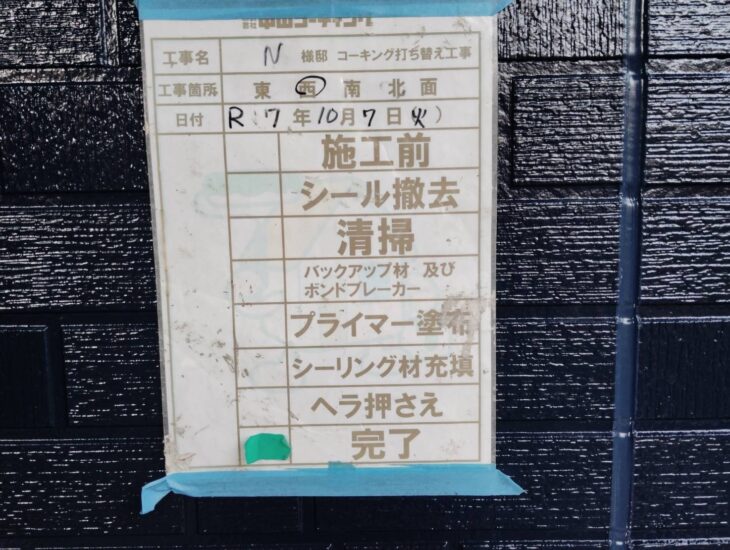 工事名 N 様邸 コーキング打ち替え工事
工事箇所 東 西 南 北 面
日付 R 7 年 10 月 7 日 (火)
施工前
シール撤去
清掃
バックアップ材 及び
ボンドブレーカー
プライマー塗布
シーリング材充填
ヘラ押さえ
完了